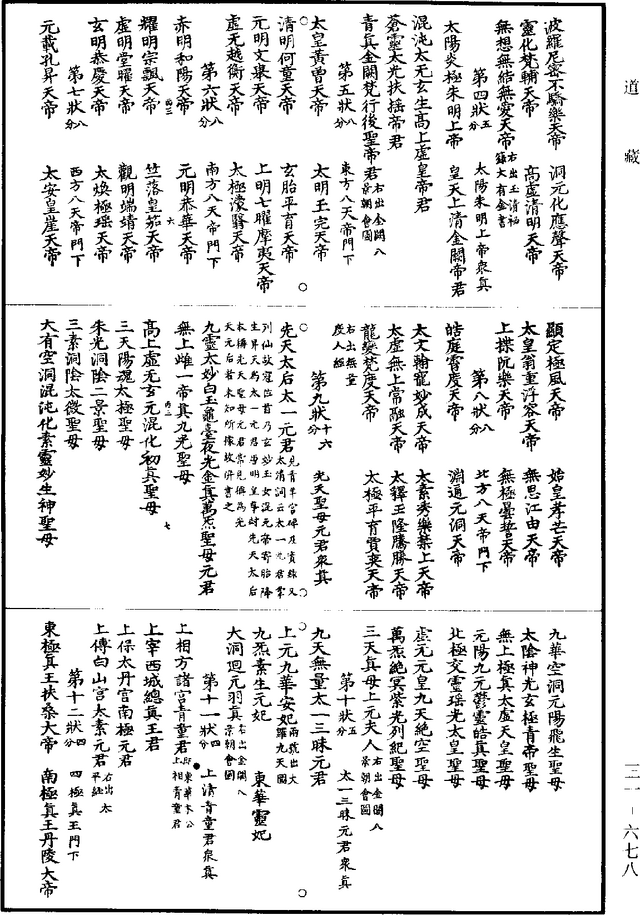 道藏
波羅尼密不驕樂天帝　洞元化應聲天帝
靈化梵輔天帝　高虛清明天帝
無想無結無愛天帝右出玉清祕籙大有金書
第四狀五分　太陽朱明上帝衆眞
太陽炎極朱明上帝　皇天上清金闕帝君
混沌太无玄生高上虛皇帝君
蒼靈太光扶搖帝君
青眞金闕梵行後聖帝君右出金闕八景朝會圖
第五狀八分　東方八天帝門下
太皇黃曾天帝　太明玉完天帝
清明何童天帝　玄胎平育天帝
元明文舉天帝　上明七曜摩夷天帝
虛无越衡天帝　太極濛翳天帝
第六狀八分　南方八天帝門下
赤明和陽天帝　元明恭華天帝
耀明宗飄天帝　竺落皇笳天帝
虛明堂曜天帝　觀明端靖天帝
玄明恭慶天帝　太煥極瑶天帝
第七狀八分　西方八天帝門下
元載孔昇天帝　太安皇崖天帝
顯定極風天帝　始皇孝芒天帝
太皇翁重浮容天帝　無思江由天帝
上揲阮樂天帝　無極曇誓天帝
第八狀八分　北方八天帝門下
皓庭霄慶天帝　淵通元洞天帝
太文翰寵妙成天帝　太素秀樂禁上天帝
太虛無上常融天帝　太釋玉隆騰勝天帝
龍變梵度天帝　太極平育賈奕天帝
右出無量度人經
第九狀十六分　先天聖母元君衆眞
先天太后太一元君
九靈太妙白玉龜臺夜光金眞萬炁聖母元君
無上雌一帝眞九光聖母
高上虛无玄元混化初眞聖母
三天陽魂太極聖母
朱光洞陰二景聖母
三素洞陰太微聖母
大有空洞混沌化素靈妙生神聖母
九華空洞元陽飛生聖母
太陰神光玄極青帝聖母
無上極眞太虛天皇聖母
元陽九元鬱靈皓眞聖母
北極交靈瑶光太皇聖母
虛元元皇九天絶空聖母
萬炁絶冥紫光列紀聖母
三天眞母上元夫人右出金闕八景朝會圖
第十狀五分　太一三昧元君衆眞
九天無量太一三昧元君
上元九華安妃兩號出大羅九天圖
九炁素生元妃　東華靈妃
大洞迴元羽眞右出金闕八景朝會圖
第十一狀四分　上清青童君衆眞
上相方諸宮青童君
上宰西城總眞王君
上保太丹宮南極元君
上傅白山宮太素元君右出太平經
第十二狀四分　四極眞王門下
東極眞王扶桑大帝　南極眞王丹陵大帝
三一－六七八